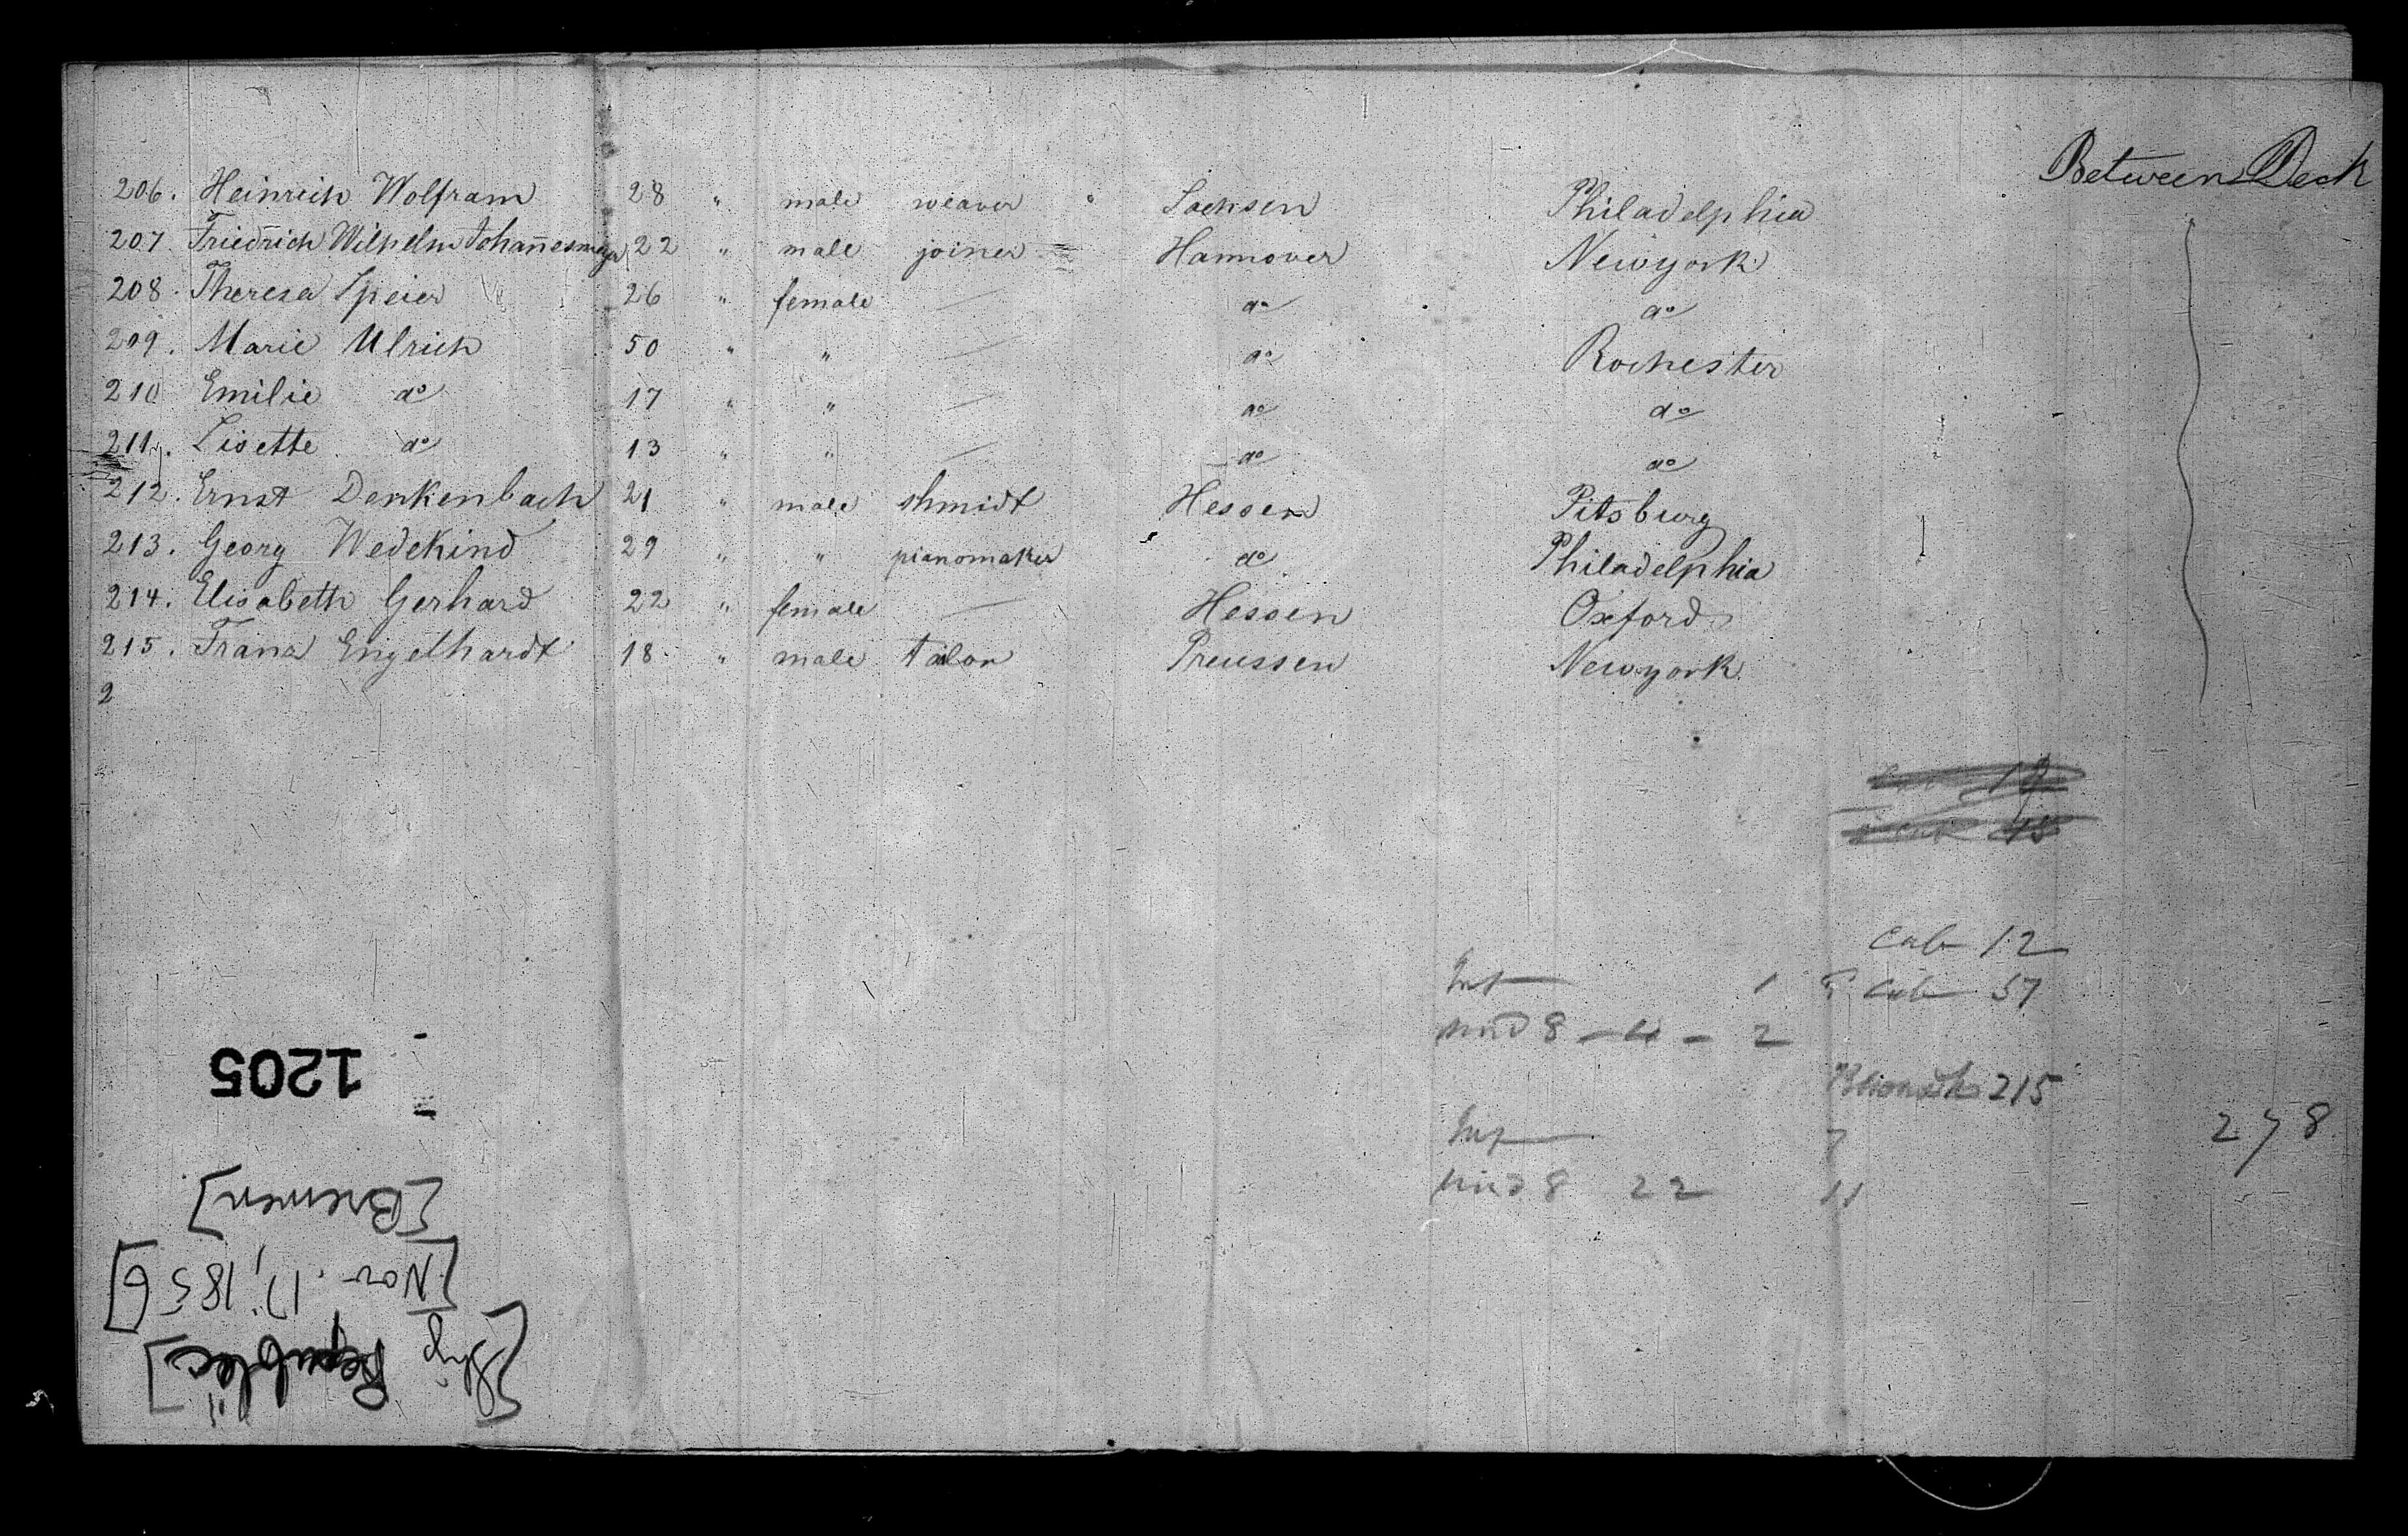 Between Deck
206. Heinrich Wolfram 28 " male weaver " Sachsen Philadelphia
207. Friedrich Wilhelm Johannesmeyer 22 " male joiner Hannover Newyork
208. Theresa Speier 26 " female — do do
209. Marie Ulrich 50 " " — do Rochester
210 Emilie do 17 " " — do do
211. Lisette do 13 " " — do do
212. Ernst Denkenbach 21 " male shmidt Hessen Pitsburg
213. Georg Wedekind 29 " " pianomaker do Philadelphia
214. Elisabeth Gerhard 22 " female — Hessen Oxford
215. Franz Engelhardt 18 " male tailor Preussen Newyork
2
Cab 12
Inf — 1 Cab 57
und 8 — 4 — 2
215
Inf — 7
278
und 8 22 11
1205
[Bremen]
[Nov. 17, 1856]
[Ship Republic]